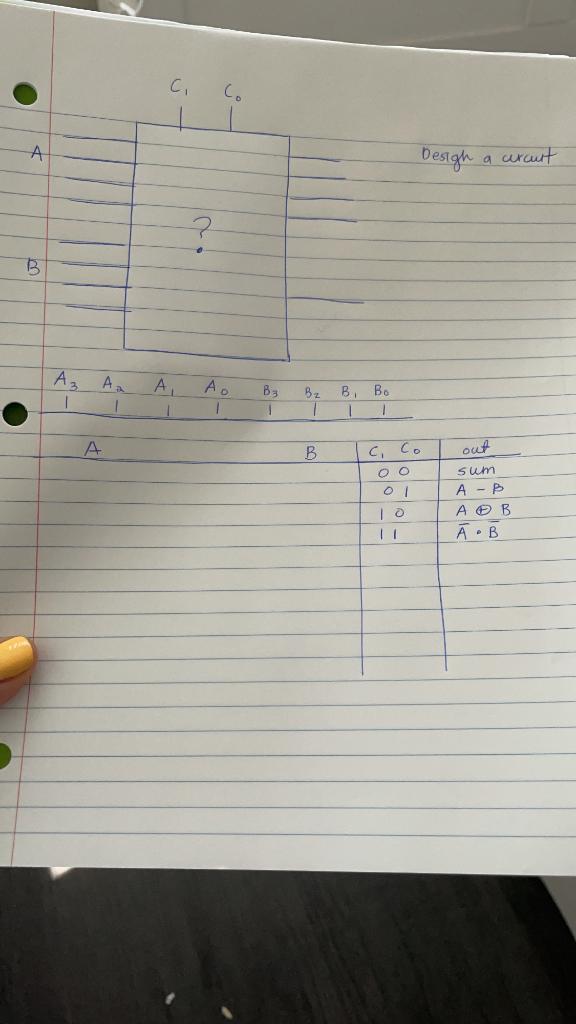 C₁ C₀
A
Design a circuit
?
B
A₃ A₂ A₁ A₀ B₃ B₂ B₁ B₀
A B C₁ C₀ out
0 0 sum
0 1 A - B
1 0 A ⊕ B
1 1 A̅ • B̅